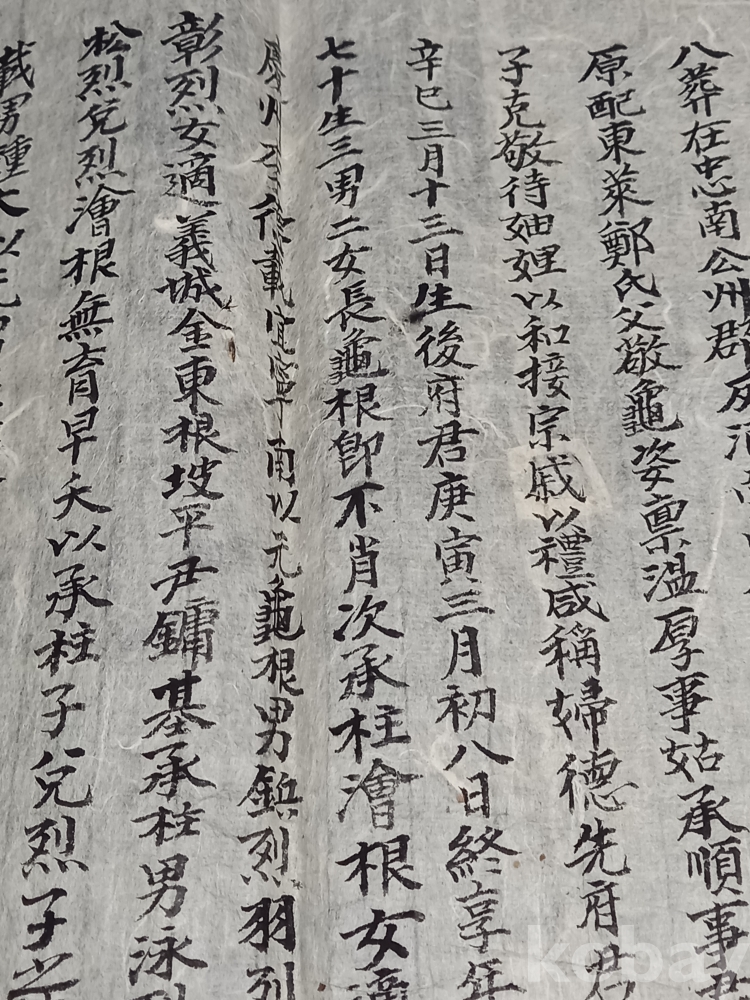 八葬在忠南公州郡反浦
原配東萊鄭氏父敬龜姿稟溫厚事姑承順事君
子克敬待妯娌以和接宗戚以禮咸稱婦德先府君
辛巳三月十三日生後府君庚寅三月初八日終享年
七十生三男二女長龜根卽不肖次承柱澮根女適
慶州 載宜寧南以元龜根男鎭烈羽烈
彰烈女適義城金東根坡平尹鏞基承柱男泳烈
松烈兌烈澮根無育早夭以承柱子兌烈子之
載男鍾大以
kobay